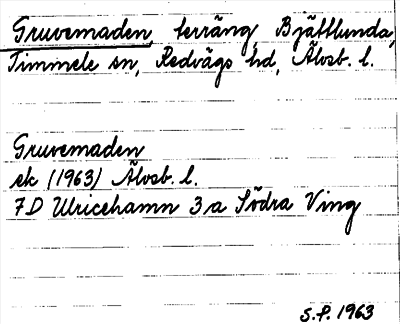 Gruvemaden, terräng, Bjättlunda,
Timmele sn, Redvägs hd, Älvsb. l.
Gruvemaden
ek (1963) Älvsb. l.
7D Ulricehamn 3a Södra Ving
S.P. 1963